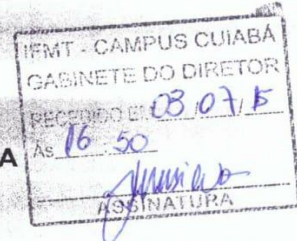 IFMT - CAMPUS CUIABÁ
GABINETE DO DIRETOR
RECEBIDO EM 03/07/15
A
ÀS 16 50
ASSINATURA